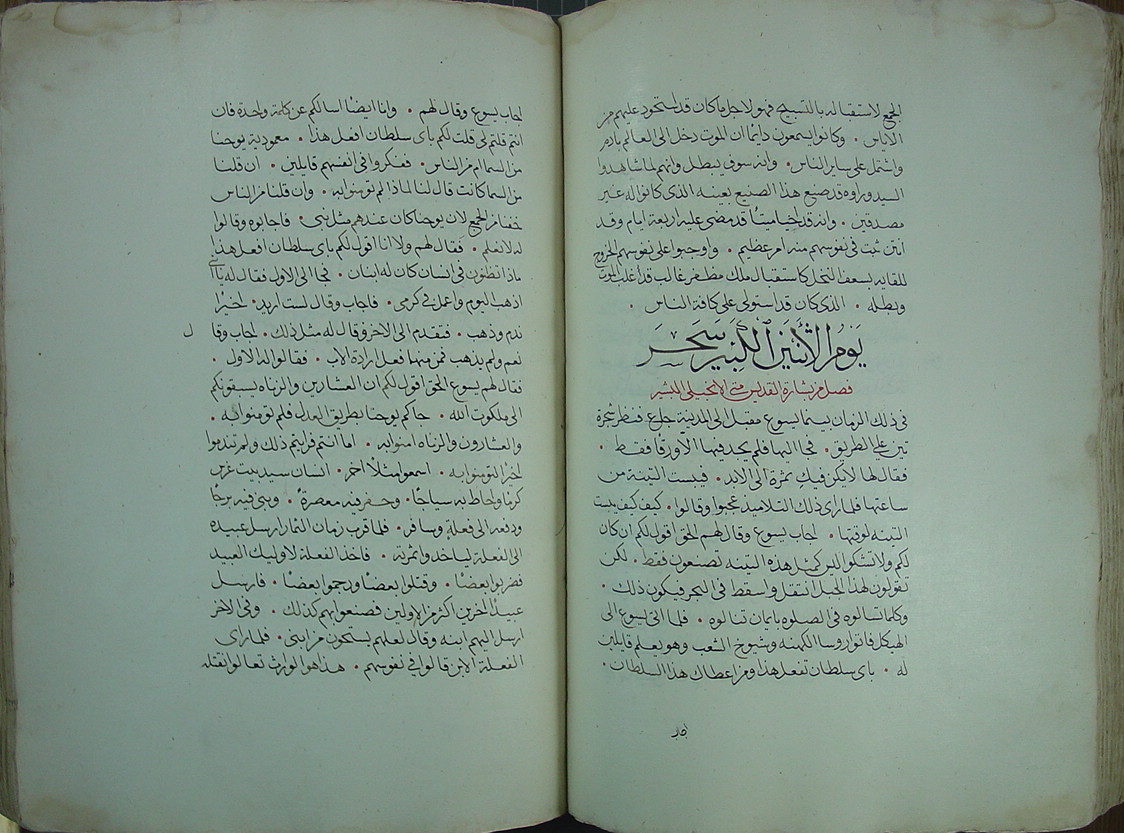 الجمع لاستقباله بالتسبيح فهو لاجل ما كان قد استحوذ عليهم من
الاياس • وكانوا يسمعون دايما ان الموت دخل الى العالم بادم
واشتمل على ساير الناس • وانه سوف يبطل وانهم لما شاهدوا
السيد وراوه قد صنع هذا الصنيع بعينه الذى كانوا له غير
مصدقين • وانه قد احيا ميتًا قد مضى عليه اربعة ايام وقد
انتن ثبت فى نفوسهم منه امر عظيم • واوجبوا على نفوسهم الخروج
للقايه بسعف النخل كاستقبال ملك مظفر غالب قد اغلب الموت
وبطله • الذى كان قد استولى على كافة الناس •
يَوم الاثنَيْن الكَبير سَحَر
فصل من بشارة القديس متى الانجيلى المبشر
فى ذلك الزمان بينما يسوع مقبل الى المدينة جاع فنظر شجرة
تين على الطريق • فجا اليها فلم يجد فيها الا ورقًا فقط •
فقال لها لا يكن فيكِ ثمرة الى الابد • فيبست التينه من
ساعتها فلما راى ذلك التلاميد عجبوا وقالوا • كيف كيف يبست
التينه لوقتها • اجاب يسوع وقال لهم الحق اقول لكم ان كان
لكم ولا تشكوا ليس كمثل هذه التينه تصنعون فقط • لكن
تقولون لهذا الجبل انتقل واسقط فى البحر فيكون ذلك •
وكلما تسالوه فى الصلوه بايمان تنالوه • فلما اتى يسوع الى
الهيكل فاتوا روسا الكهنه وشيوخ الشعب وهو يعلم قايلين
له • باى سلطان تفعل هذا ومن اعطاك هذا السلطان •
اجاب يسوع وقال لهم • وانا ايضًا اسالكم عن كلمة واحدة فان
انتم قلتم لى قلت لكم باى سلطان افعل هذا • معمودية يوحنا
من السما ام من الناس • ففكروا فى انفسهم قايلين • ان قلنا
من السما كانت قال لنا لماذا لم تومنوا به • وان قلنا من الناس
خفنا من الجمع لان يوحنا كان عندهم مثل نبى • فاجابوه وقالوا
له لا نعلم • فقال لهم ولا انا اقول لكم باى سلطان افعل هذا
ماذا تظنون فى انسان كان له ابنان • فجا الى الاول فقال له يا ابنى
اذهب اليوم واعمل فى كرمى • فاجاب وقال لست اريد • اخيرًا
ندم وذهب • فتقدم الى الاخر وقال له مثل ذلك • اجاب وقا ل
نعم ولم يذهب فمن منهما فعل ارادة الاب • فقالوا له الاول •
فقال لهم يسوع الحق اقول لكم ان العشارين والزناه يسبقونكم
الى ملكوت الله • جاكم يوحنا بطريق العدل فلم تومنوا به •
والعشارون والزناه امنوا به • اما انتم فرايتم ذلك ولم تندموا
اخيرا لتومنوا به • اسمعوا مثلًا اخر • انسان سيد بيت غرس
كرمًا واحاط به سياجًا • وحفر فيه معصرةً • وبنى فيه برجًا
ودفعه الى فعلةٍ وسافر • فلما قرب زمان الثمار ارسل عبيده
الى الفعلة لياخذوا ثمرته • فاخذ الفعلة لاوليك العبيد
فضربوا بعضًا • وقتلوا بعضًا ورجموا بعضًا • فارسل
عبيدًا اخرين اكثر من الاولين فصنعوا بهم كذلك • وفى الاخر
ارسل اليهم ابنه وقال لعلهم يستحون من ابنى • فلما راى
الفعلة الابن قالوا فى نفوسهم • هذا هو الوارث تعالوا نقتله